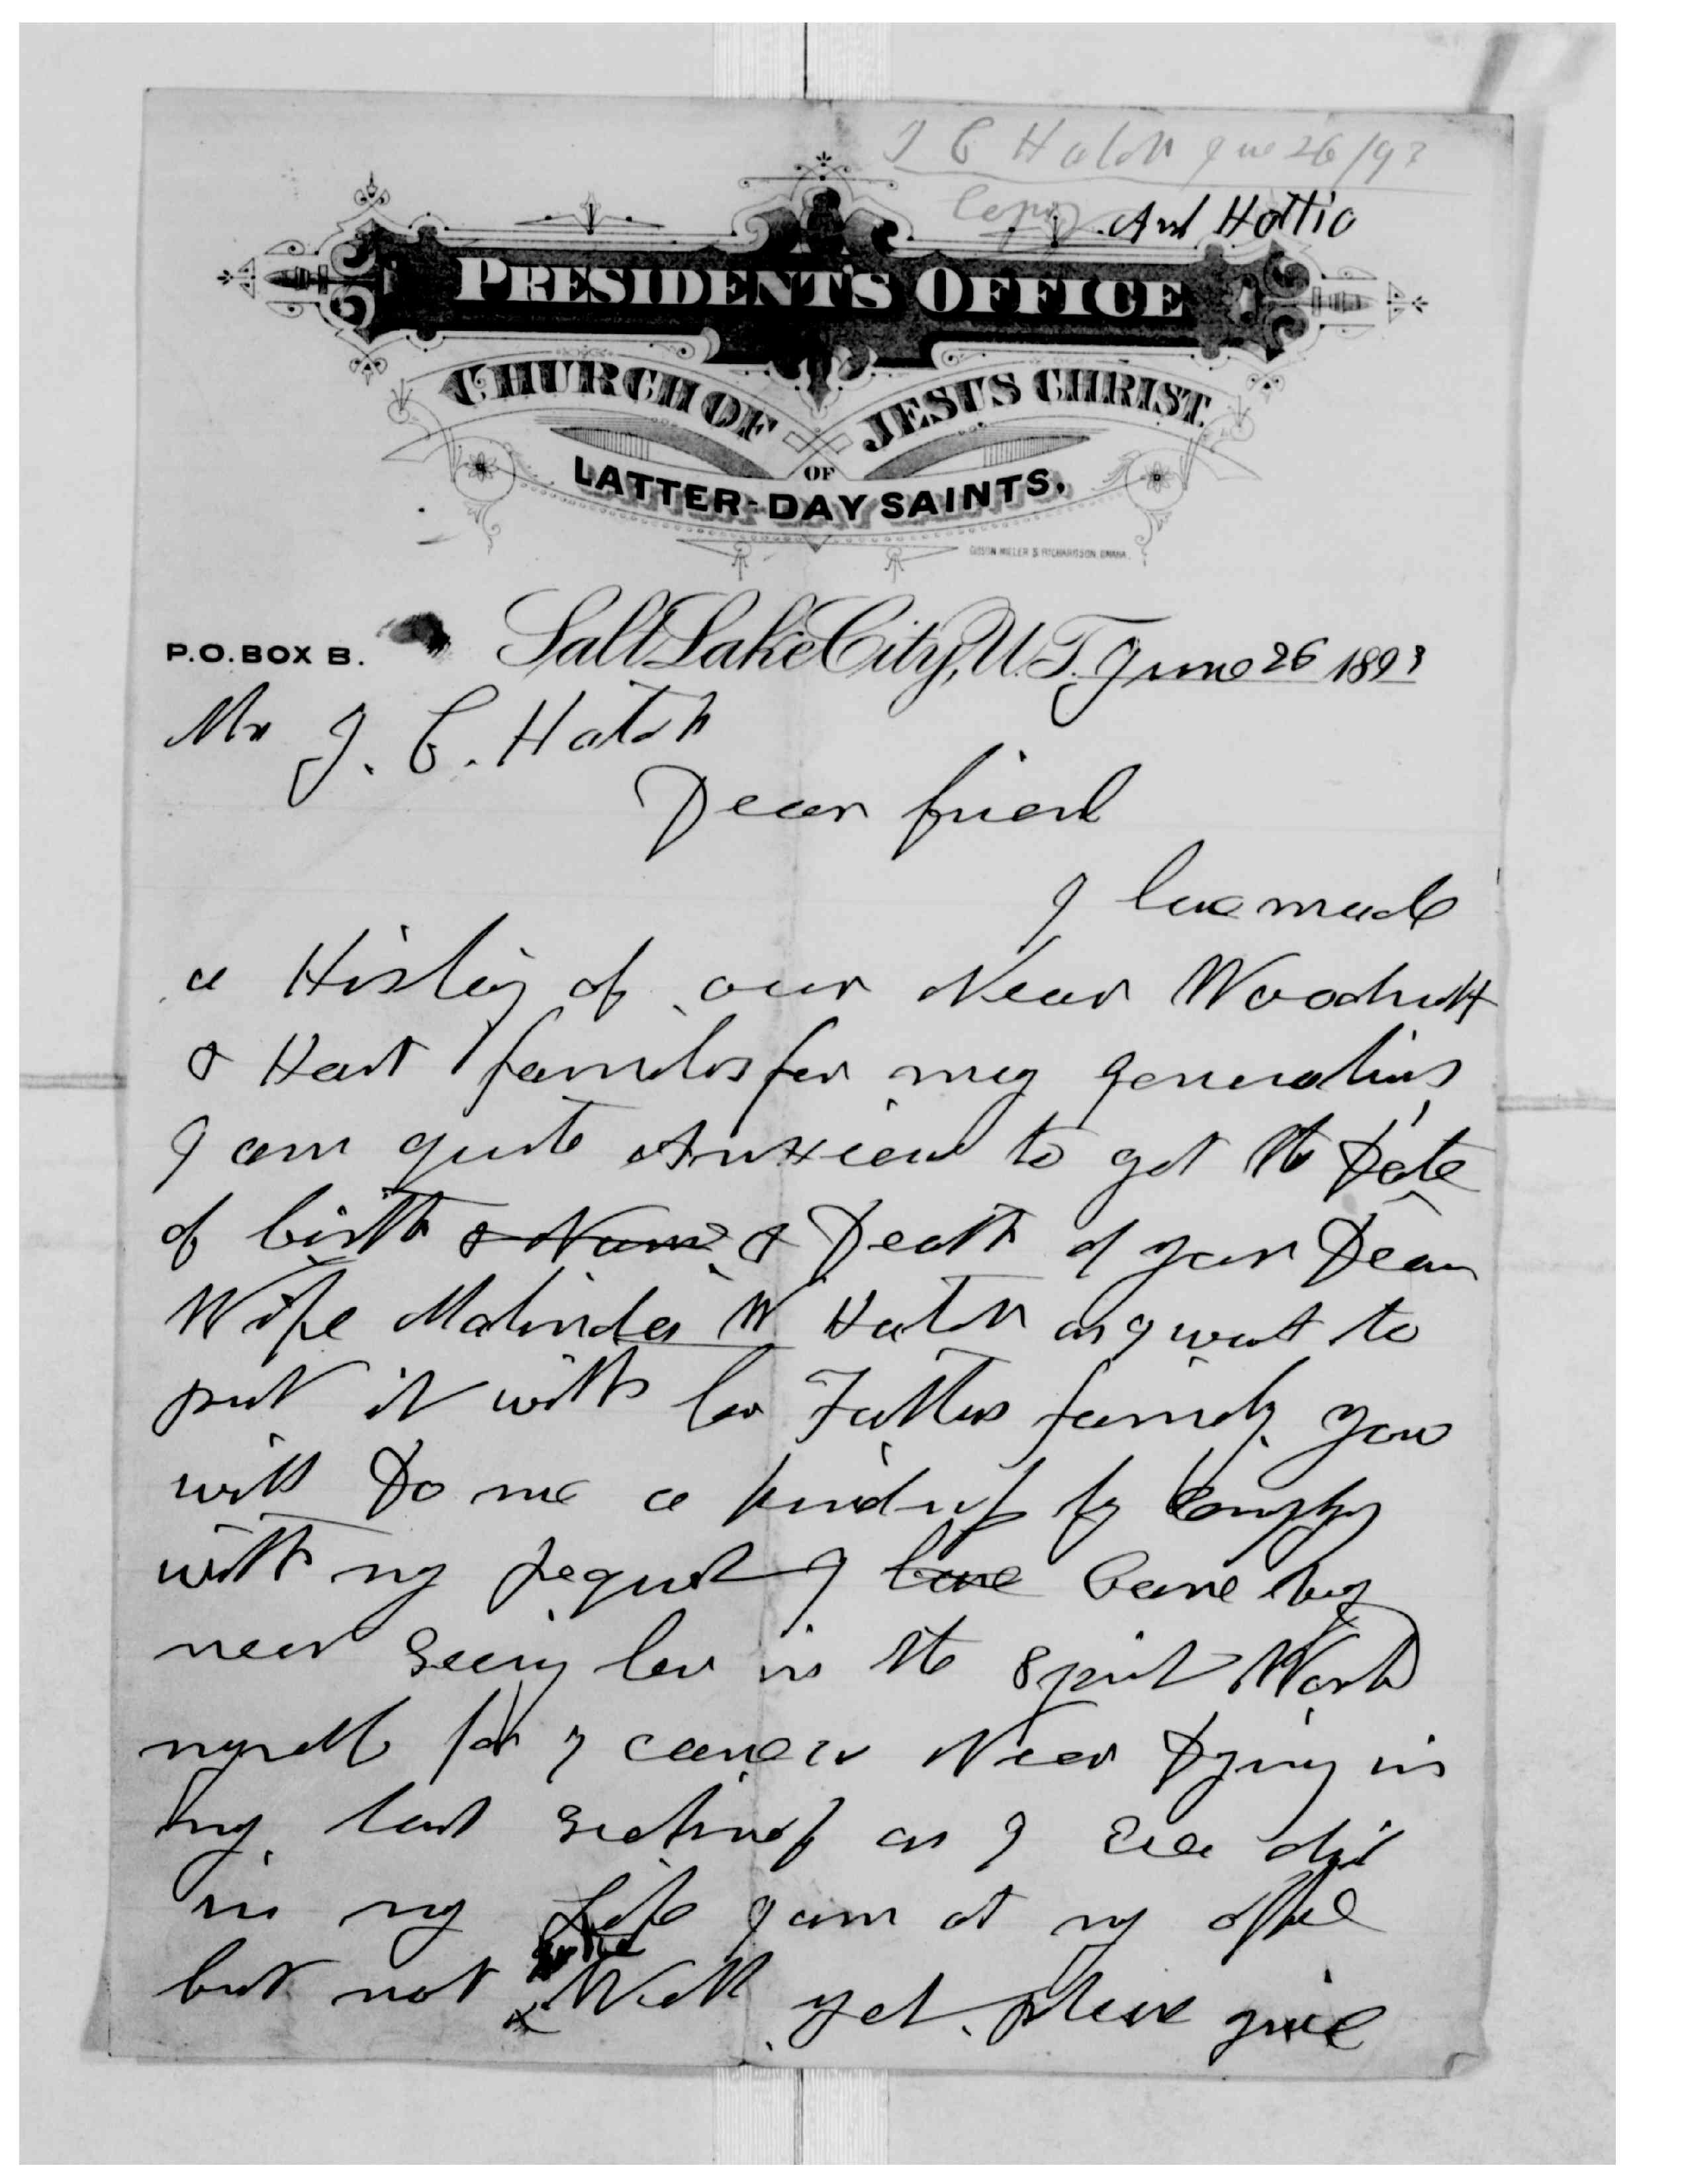 J C Hatch June 26/93
Copy Ant Hattie
PRESIDENT'S OFFICE
CHURCH OF JESUS CHRIST
OF
LATTER-DAY SAINTS.
P.O. BOX B. Salt Lake City, U.T. June 26 1893
Mr J. C. Hatch
Dear friend
I have made
a History of our Near Woodruff
& Hart families for meny generations
I am quite Anxious to get the Date
of birth & Name & Death of your Dear
Wife Malinda W Hatch as I want to
put it with her Fathers family you
will Do me a kindness by Complying
with my request I have Came very
near seeing her in the spirit World
myself for I came as Near Dying in
my last sickness as I Ever did
in my Life I am at my office
but not quite Well yet. please give